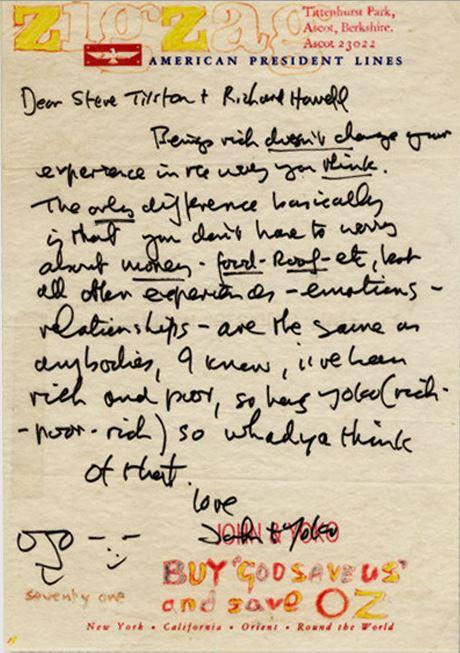 zigzag
Tittenhurst Park,
Ascot, Berkshire.
Ascot 23022
AMERICAN PRESIDENT LINES
Dear Steve Tilston + Richard Howell
Being rich doesn't change your
experience in the way you think.
The only difference basically
is that you don't have to worry
about money - food - Roof - etc, but
all other experiences - emotions -
relationships - are the same as
anybodies, I know, i've been
rich and poor, so has Yoko (rich-
-poor-rich) so whadya think
of that.
love
John + Yoko
JOHN & YOKO
seventy one
BUY 'GOD SAVE US'
and save OZ
New York • California • Orient • Round the World